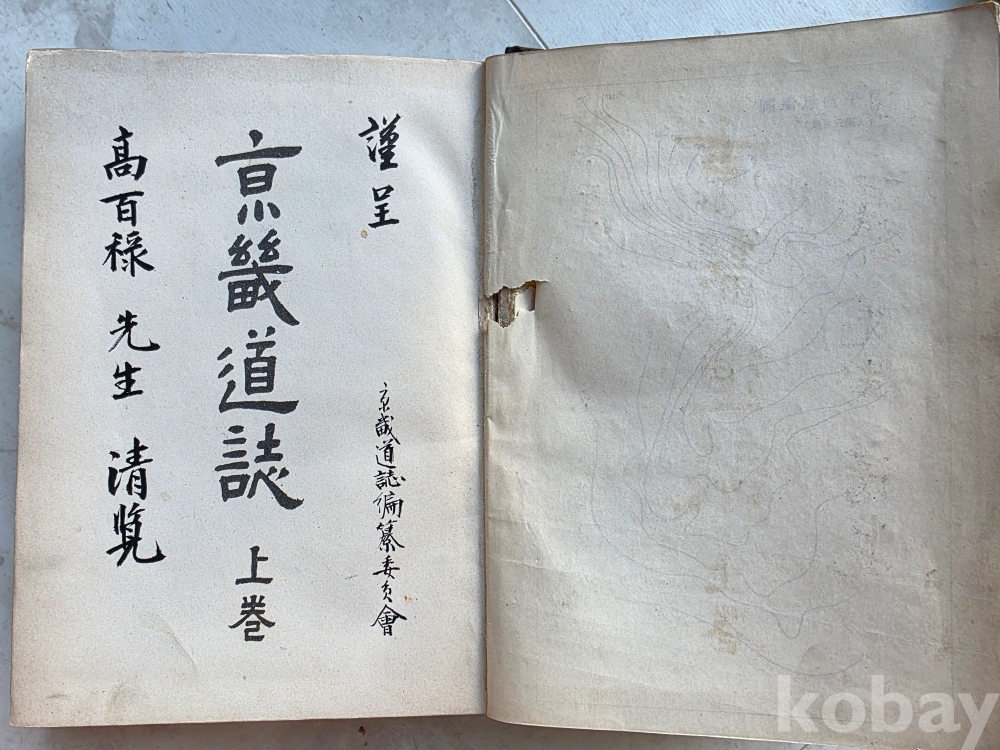 謹呈
京畿道誌編纂委員會
京畿道誌 上巻
高百祿 先生 清覽
kobay